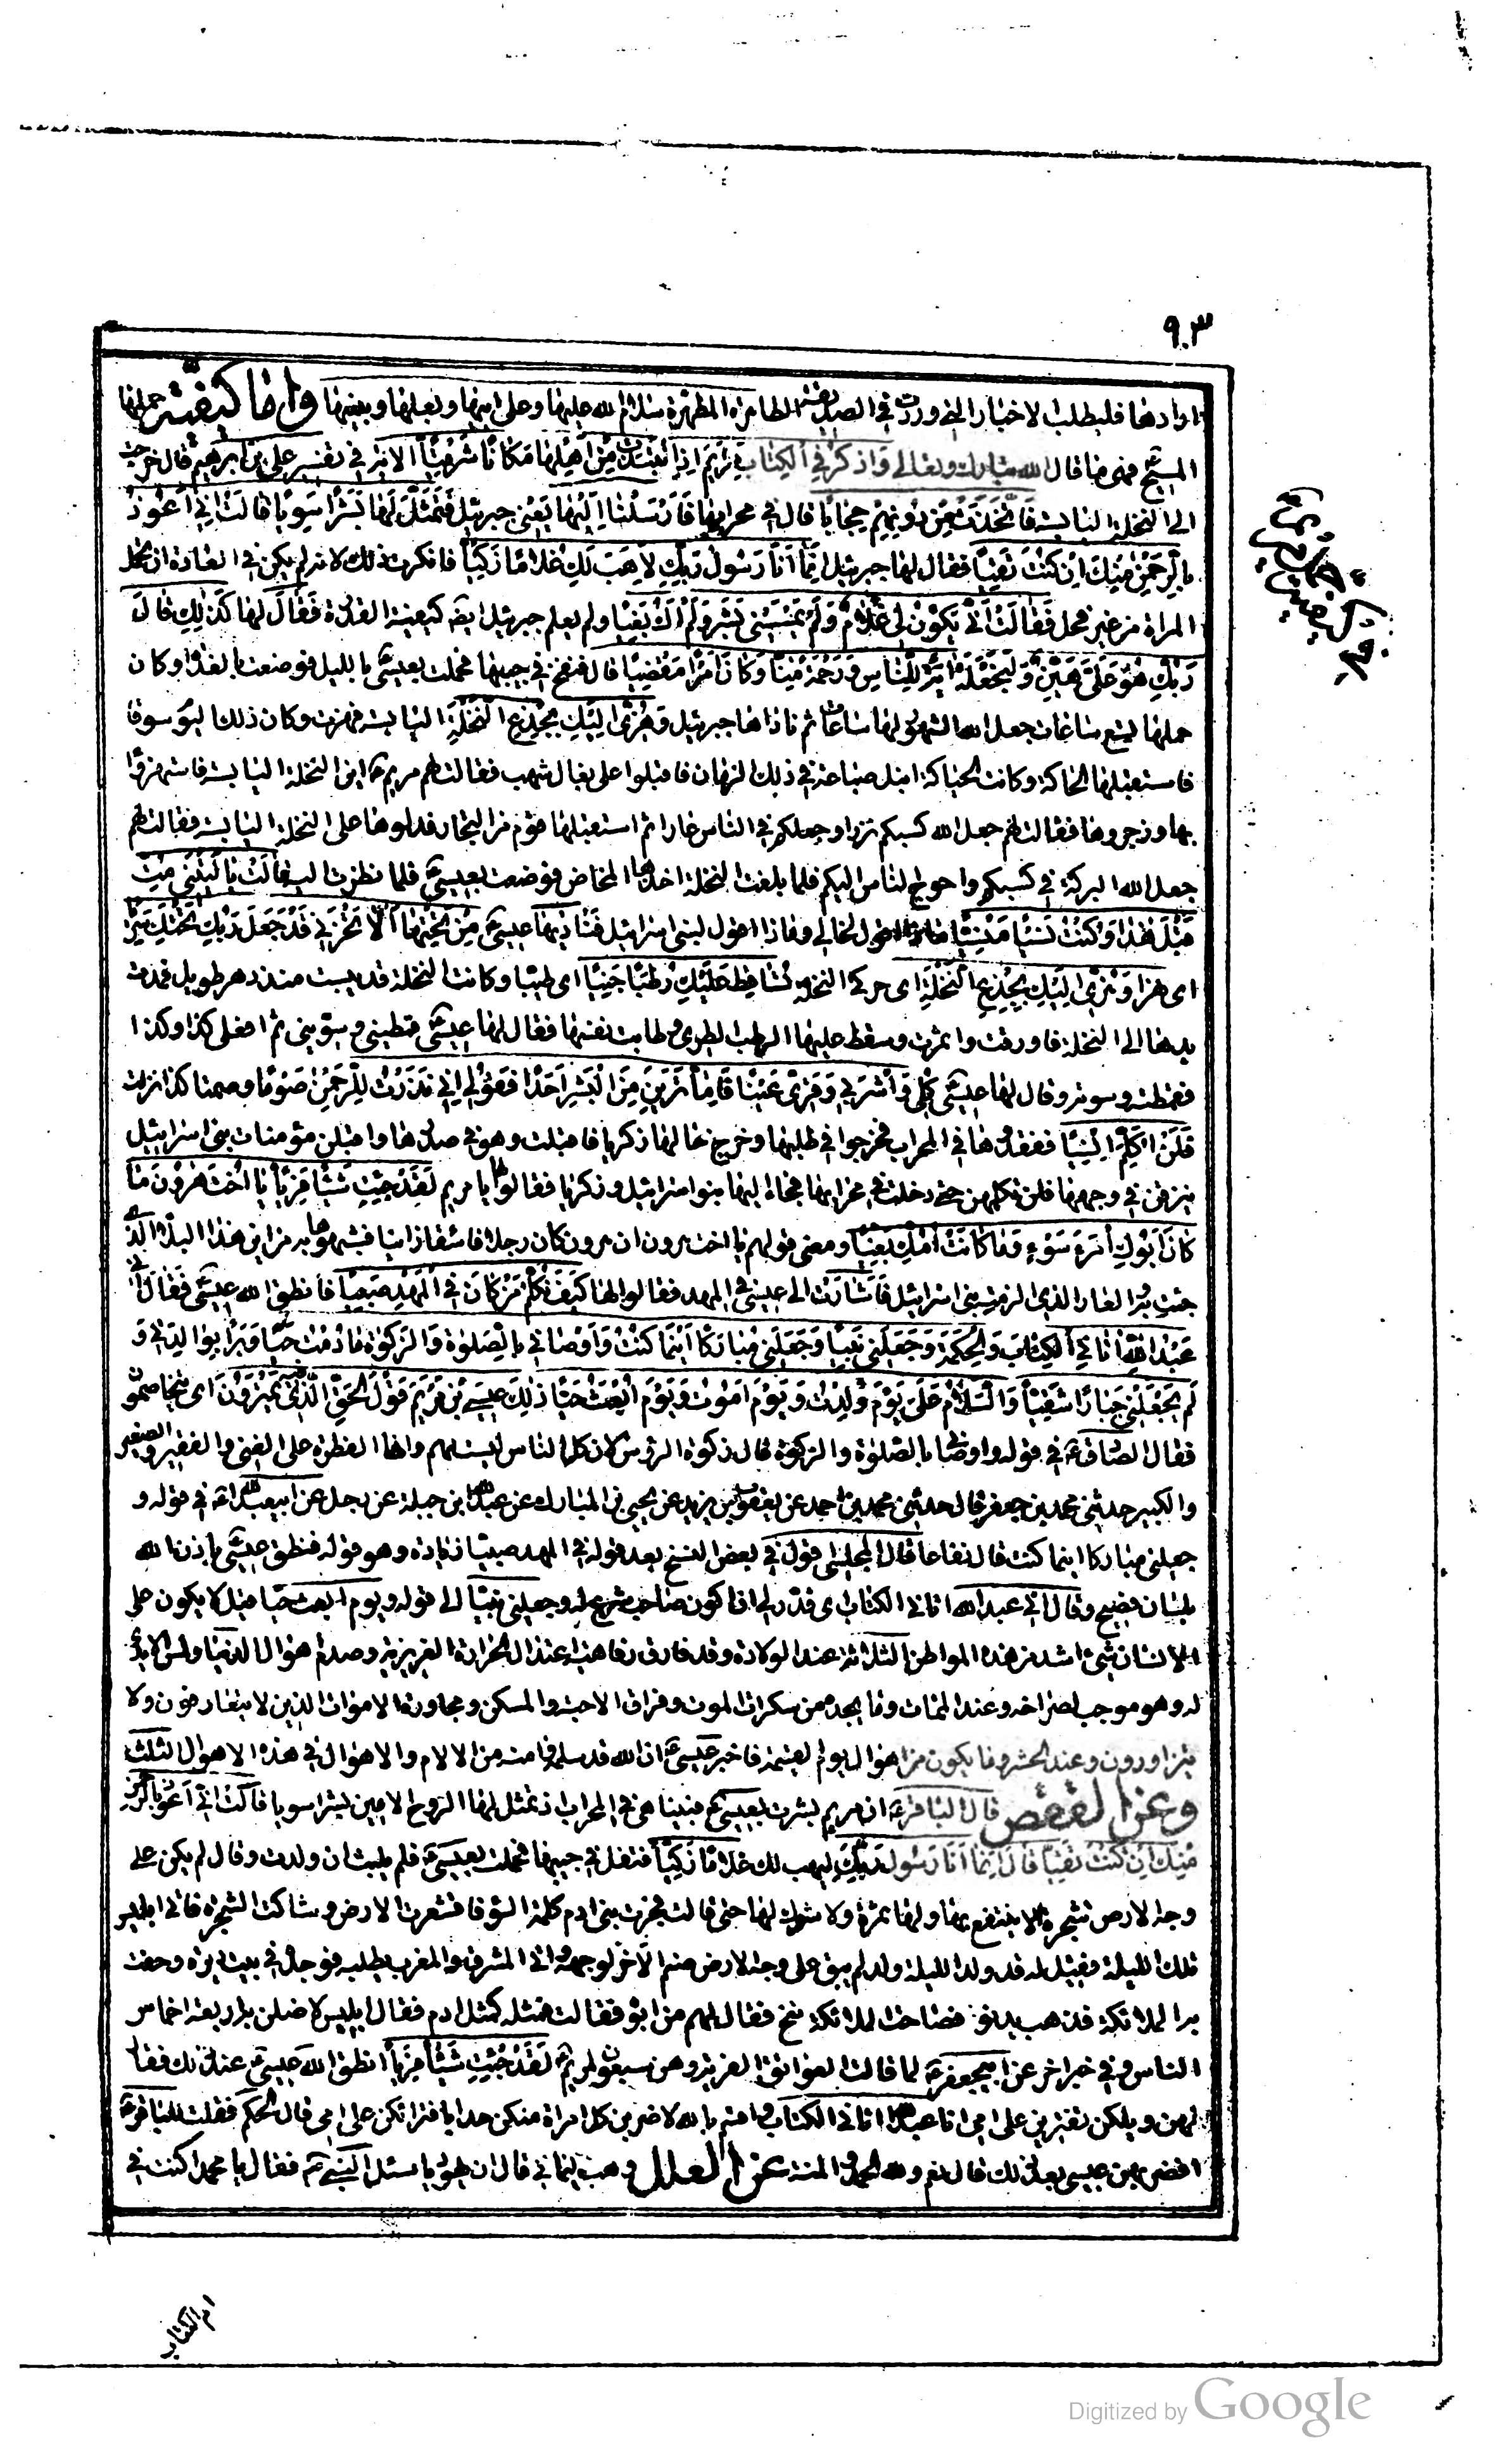 ٩٠٣
ارادها فليطلب الاخبار التي وردت في الصديقة الطاهرة المطهرة سلام الله عليها وعلى ابيها وبعلها وبنيها واما كيفيّة حملها
المسيح فهى ما قال الله تبارك وتعالى وَاذكُرْ فِي الْكِتَابِ مَرْيَمَ اِذِ انْتَبَذَتْ مِنْ اَهْلِهَا مَكَانًا شَرْقِيًّا الاية في تفسير علي بن ابرهيم قال خرجت
الى النخلة اليابسة فَاتَّخَذَتْ مِنْ دُونِهِمْ حِجَابًا قال في محرابها فَاَرْسَلْنَا اِلَيْهَا يعنى جبرئيل فَتَمَثَّلَ لَهَا بَشَرًا سَوِيًّا قَالَتْ اِنّى اَعُوذُ
بِالرَّحْمٰنِ مِنْكَ اِنْ كُنْتَ تَقِيًّا فقال لها جبرئيل اِنَّمَا اَنَا رَسُولُ رَبِّكِ لِاَهَبَ لَكِ غُلَامًا زَكِيًّا فانكرت ذلك لانه لم يكن في العادة ان تحمل
المراة من غير فحل فَقَالَتْ اَنّى يَكُونُ لِى غُلَامٌ وَلَمْ يَمْسَسْنِى بَشَرٌ وَلَمْ اَكُ بَغِيًّا ولم يعلم جبرئيل ايضا كيفية القدرة فَقَالَ لها كَذٰلِكِ قَالَ
رَبُّكِ هُوَ عَلَىَّ هَيِّنٌ وَلِنَجْعَلَهُ اٰيَةً لِلنَّاسِ وَرَحْمَةً مِنَّا وَكَانَ اَمْرًا مَقْضِيًّا قال فنفخ في جيبها فحملت بعيسى بالليل فوضعت بالغداة وكان
حملها تسع ساعات جعل الله الشهور لها ساعات ثم ناداها جبرئيل وَهُزّى اِلَيْكِ بِجِذْعِ النَّخْلَةِ اليابسة فهزت وكان ذلك اليوم سوقا
فاستقبلها الحاكة وكانت الحياكة انبل صناعة في ذلك الزمان فاقبلوا على بغال شهب فقالت لهم مريم اين النخلة اليابسة فاستهزؤا
بها وزجروها فقالت لهم جعل الله كسبكم نزرا وجعلكم في الناس عارا ثم استقبلها قوم من التجار فدلوها على النخلة اليابسة فقالت لهم
جعل الله البركة في كسبكم واحوج الناس اليكم فلما بلغت النخلة اخذها المخاض فوضعت بعيسى فلما نظرت اليه قَالَتْ يَا لَيْتَنِى مِتُّ
قَبْلَ هٰذَا وَكُنْتُ نَسْيًا مَنْسِيًّا ماذا اقول لخالي وماذا اقول لبنى اسرائيل فَنَادٰيهَا عيسى مِنْ تَحْتِهَا اَلَّا تَحْزَنِى قَدْ جَعَلَ رَبُّكِ تَحْتَكِ سَرِيًّا
اى نهرا وَهُزّى اِلَيْكِ بِجِذْعِ النَّخْلَةِ اى حركى النخلة تُسَاقِطْ عَلَيْكِ رُطَبًا جَنِيًّا اى طيبا وكانت النخلة قد يبست منذ دهر طويل فمدت
يدها الى النخلة فاورقت واثمرت وسقط عليها الرطب الطرى وطابت نفسها فقال لها عيسى قمطينى وسوينى ثم افعلى كذا وكذا
فقمطته وسوته وقال لها عيسى فَكُلِى وَاشْرَبِى وَقَرّى عَيْنًا فَاِمَّا تَرَيِنَّ مِنَ الْبَشَرِ اَحَدًا فَقُولِى اِنّى نَذَرْتُ لِلرَّحْمٰنِ صَوْمًا وصمتا كذا نزلت
فَلَنْ اُكَلِّمَ الْيَوْمَ اِنْسِيًّا ففقدوها في المحراب فخرجوا في طلبها وخرج خالها زكريا فاقبلت وهو في صدرها واقبلن مؤمنات بنى اسرائيل
يبزقن في وجهها فلن تكلمهن حتى دخلت في محرابها فجاء اليها بنوا اسرائيل وزكريا فقالوا يا مريم لَقَدْ جِئْتِ شَيْئًا فَرِيًّا يَا اُخْتَ هٰرُونَ مَا
كَانَ اَبُوكِ امْرَءَ سَوْءٍ وَمَا كَانَتْ اُمُّكِ بَغِيًّا ومعنى قولهم يا اخت هرون ان هرون كان رجلا فاسقا زانيا فشبهوها به من اين هذا البلاء الذى
جئت به والعار الذى الزمت بنى اسرائيل فَاَشَارَتْ الى عيسى في المهد فقالوا لها كَيْفَ نُكَلِّمُ مَنْ كَانَ فِى الْمَهْدِ صَبِيًّا فانطق الله عيسى فقَالَ اِنّى
عَبْدُ اللهِ اٰتَانِىَ الْكِتَابَ وَالْحِكْمَةَ وَجَعَلَنِى نَبِيًّا وَجَعَلَنِى مُبَارَكًا اَيْنَمَا كُنْتُ وَاَوْصَانِى بِالصَّلٰوةِ وَالزَّكٰوةِ مَا دُمْتُ حَيًّا وَبَرًّا بِوَالِدَتِى وَ
لَمْ يَجْعَلْنِى جَبَّارًا شَقِيًّا وَالسَّلَامُ عَلَىَّ يَوْمَ وُلِدْتُ وَيَوْمَ اَمُوتُ وَيَوْمَ اُبْعَثُ حَيًّا ذٰلِكَ عِيسَى بْنُ مَرْيَمَ قَوْلَ الْحَقِّ الَّذِى فِيهِ يَمْتَرُونَ اى يتخاصمون
فقال الصادق ع في قوله واوصانى بالصلوة والزكوة قال زكوة الرؤس لان كل الناس ليست لهم وانما الفطرة على الغنى والفقير والصغير
والكبير حدثنى محمد بن جعفر قال حدثنى محمد بن احمد عن يعقوب بن يزيد عن يحيى بن المبارك عن عبد الله بن جبلة عن رجل عن ابيعبد الله ع في قوله و
جعلنى مباركا اينما كنت قال نفاعا قال المجلسى قول في بعض النسخ بعد قوله في المهد صبيا زيادة وهو قوله فنطق عيسى باذن الله
بلسان فصيح وقال انى عبد الله اتانى الكتاب اى قدر لى ان اكون صاحب شرع له وجعلنى نبيا الى قوله ويوم ابعث حيا قيل لا يكون على
الانسان شئ اشد من هذه المواطن الثلاثة عند الولادة وقد فارق رفاهية عند الحرارة الغريزية وصدم هواء الدنيا ولمس الايدى
له وهو موجب لصراخه وعند الممات وما يجده من سكرات الموت وفراق الاحبة والمسكن ومجاورة الاموات الذين لا يتعارفون ولا
يتزاورون وعند الحشر وما يكون من اهوال يوم القيمة فاخبر عيسى ان الله قد سلمه وامنه من الالام والاهوال في هذه الاهوال الثلث
وعن القصص قال الباقر ع ان مريم بشرت بعيسى ع فبينا هى في المحراب اذ تمثل لها الروح الامين بشرا سويا قَالَتْ اِنّى اَعُوذُ بِالرَّحْمٰنِ
مِنْكَ اِنْ كُنْتَ تَقِيًّا قَالَ اِنَّمَا اَنَا رَسُولُ رَبِّكِ ليهب لك غُلَامًا زَكِيًّا فتفل في جيبها فحملت بعيسى ع فلم يلبث ان ولدت وقال لم يكن على
وجه الارض شجرة الا ينتفع بها ولها ثمرة ولا شوك لها حتى قالت فجرة بنى ادم كلمة السوء فاقشعرت الارض وشاكت الشجرة فاتى ابليس
تلك الليلة فقيل له قد ولد الليلة ولد لم يبق على وجه الارض صنم الا خر لوجهه واتى المشرق والمغرب يطلبه فوجده في بيت ديرة وحفت
به الملائكة فذهب يدنو فصاحت الملائكة تنح فقال لهم من ابوه فقالت مثله كمثل ادم فقال ابليس لاضلن به اربعة اخماس
الناس وفي خبر اخر عن ابيجعفر ع لما قالت العواتق الفرية وهن سبعون لمريم ع لَقَدْ جِئْتِ شَيْئًا فَرِيًّا انطق الله عيسى ع عند ذلك فقال
لهن ويلكن تفترين على امى انا عبد الله اتانى الكتاب واقسم بالله لاضربن كل امراة منكن حدا بافترائكن على امى قال الحكم فقلت للباقر ع
افضربهن عيسى بعد ذلك قال نعم ولله الحمد والمنة عن العلل وهب اليمانى قال ان يهوديا سئل النبى ص فقال يا محمد اكنت في
ام الكتاب